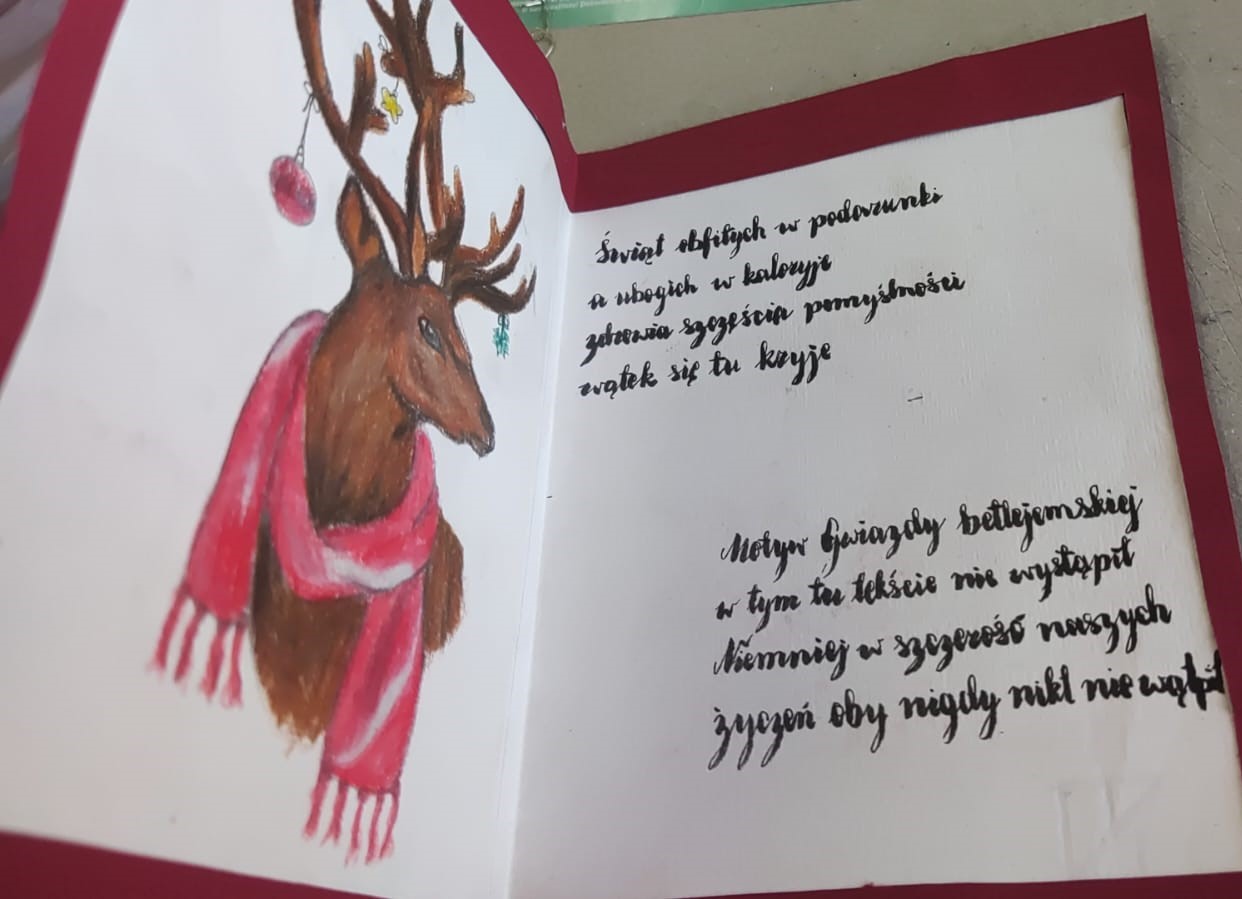 Świąt obfitych w podarunki
a ubogich w kaloryje
zdrowia szczęścia pomyślności
wątek się tu kryje
Motyw Gwiazdy betlejemskiej
w tym tu tekście nie wystąpił
Niemniej w szczerość naszych
życzeń oby nigdy nikt nie wątpił